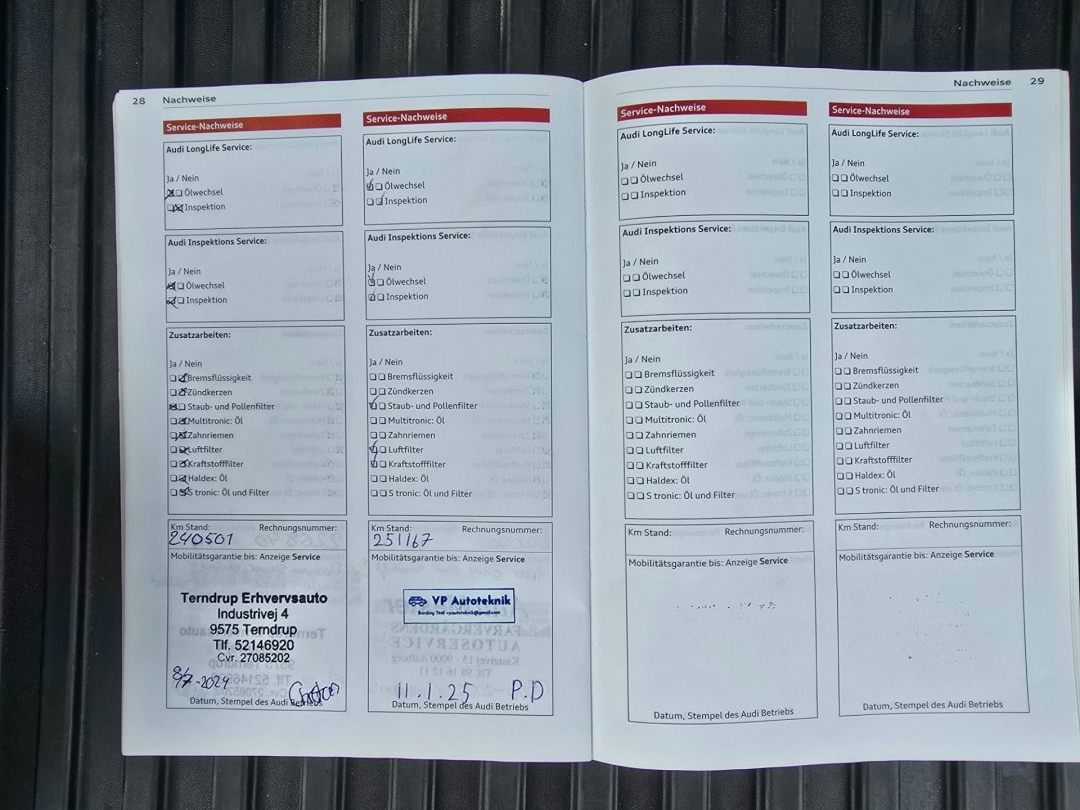 28 Nachweise
Service-Nachweise
Audi LongLife Service:
Ja / Nein
Ölwechsel
Inspektion
Audi Inspektions Service:
Ja / Nein
Ölwechsel
Inspektion
Zusatzarbeiten:
Ja / Nein
Bremsflüssigkeit
Zündkerzen
Staub- und Pollenfilter
Multitronic: Öl
Zahnriemen
Luftfilter
Kraftstofffilter
Haldex: Öl
S tronic: Öl und Filter
Km Stand: Rechnungsnummer:
240501
Mobilitätsgarantie bis: Anzeige Service
Terndrup Erhvervsauto
Industrivej 4
9575 Terndrup
Tlf. 52146920
Cvr. 27085202
8/7-2024
Datum, Stempel des Audi Betriebs
Service-Nachweise
Audi LongLife Service:
Ja / Nein
Ölwechsel
Inspektion
Audi Inspektions Service:
Ja / Nein
Ölwechsel
Inspektion
Zusatzarbeiten:
Ja / Nein
Bremsflüssigkeit
Zündkerzen
Staub- und Pollenfilter
Multitronic: Öl
Zahnriemen
Luftfilter
Kraftstofffilter
Haldex: Öl
S tronic: Öl und Filter
Km Stand: Rechnungsnummer:
251167
Mobilitätsgarantie bis: Anzeige Service
VP Autoteknik
11.1.25 P.D
Datum, Stempel des Audi Betriebs
Nachweise 29
Service-Nachweise
Audi LongLife Service:
Ja / Nein
Ölwechsel
Inspektion
Audi Inspektions Service:
Ja / Nein
Ölwechsel
Inspektion
Zusatzarbeiten:
Ja / Nein
Bremsflüssigkeit
Zündkerzen
Staub- und Pollenfilter
Multitronic: Öl
Zahnriemen
Luftfilter
Kraftstofffilter
Haldex: Öl
S tronic: Öl und Filter
Km Stand: Rechnungsnummer:
Mobilitätsgarantie bis: Anzeige Service
Datum, Stempel des Audi Betriebs
Service-Nachweise
Audi LongLife Service:
Ja / Nein
Ölwechsel
Inspektion
Audi Inspektions Service:
Ja / Nein
Ölwechsel
Inspektion
Zusatzarbeiten:
Ja / Nein
Bremsflüssigkeit
Zündkerzen
Staub- und Pollenfilter
Multitronic: Öl
Zahnriemen
Luftfilter
Kraftstofffilter
Haldex: Öl
S tronic: Öl und Filter
Km Stand: Rechnungsnummer:
Mobilitätsgarantie bis: Anzeige Service
Datum, Stempel des Audi Betriebs